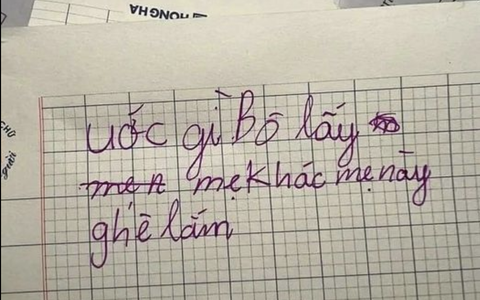 HONGHA
ước gì Bố lấy
mẹ khác mẹ này
ghê lắm